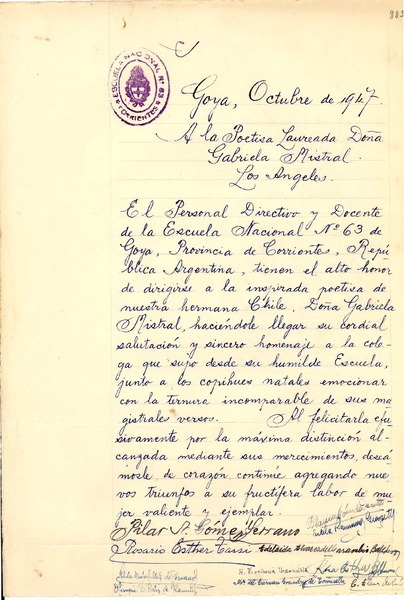 383
ESCUELA NACIONAL Nº 63
CORRIENTES
Goya, Octubre de 1947.
A la Poetisa Laureada Doña
Gabriela Mistral.
Los Angeles.
El Personal Directivo y Docente
de la Escuela Nacional Nº 63 de
Goya, Provincia de Corrientes, Repú
blica Argentina, tienen el alto honor
de dirigirse a la inspirada poetisa de
nuestra hermana Chile, Doña Gabriela
Mistral, haciéndole llegar su cordial
salutación y sincero homenaje a la cole-
ga que supo desde su humilde Escuela,
junto a los copihues natales emocionar
con la ternura incomparable de sus ma
gistrales versos. Al felicitarla efu
sivamente por la máxima distinción al-
canzada mediante sus merecimientos, deseá
mosle de corazón, continúe agregando nue-
vos triunfos a su fructífera labor de mu-
jer valiente y ejemplar.
Pilar A. Gómez Serrano
Rosario Esther Tassi